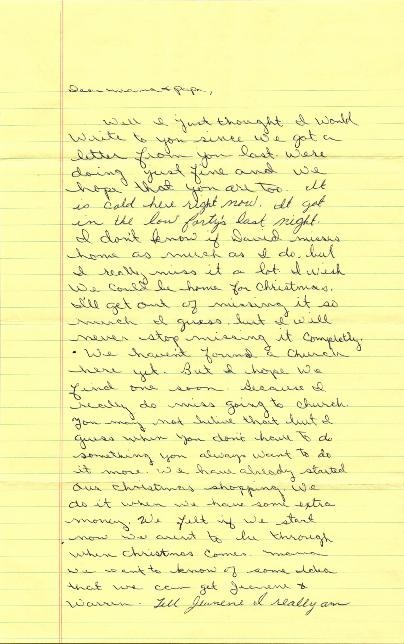 Dear Mama & Papa,
Well I just thought I would
write to you since we got a
letter from you last. Were
doing just fine and we
hope that you are too. It
is cold here right now. It got
in the low forty's last night.
I don't know if David misses
home as much as I do, but
I really miss it a lot. I wish
we could be home for Christmas.
I'll get out of missing it so
much I guess, but I will
never stop missing it completly.
We havent found a Church
here yet. But I hope we
find one soon. Because I
really do miss going to church.
You may not belive that but I
guess when you don't have to do
something you always want to do
it more. We have already started
our Christmas shopping. We
do it when we have some extra
money. We felt if we start
now we to be through
when Christmas comes. Mama
we want to know of some idea
that we can get Jeanene &
Warren. Tell Jeanene I really am